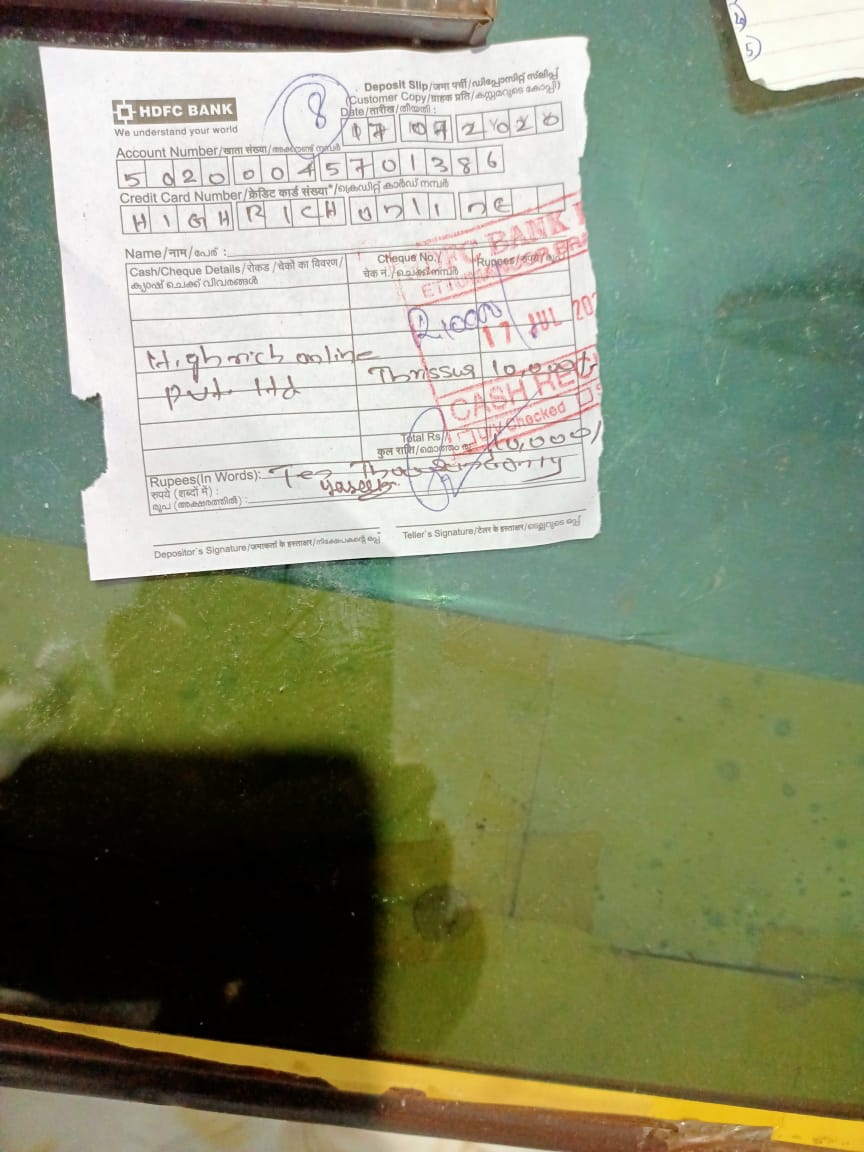 2)
5)
HDFC BANK
We understand your world
8
Deposit Slip/जमा पर्ची/ഡിപ്പോസിറ്റ് സ്ലിപ്പ്
(Customer Copy/ग्राहक प्रति/കസ്റ്റമറുടെ കോപ്പി)
Date/तारीख/തീയതി :
17 07 2020
Account Number/खाता संख्या/അക്കൗണ്ട് നമ്പർ
50200045701386
Credit Card Number/क्रेडिट कार्ड संख्या*/ക്രെഡിറ്റ് കാർഡ് നമ്പർ
HIGH RICH Online
Name/नाम/പേര് :
Cash/Cheque Details/रोकड/चेकों का विवरण/
ക്യാഷ് ചെക്ക് വിവരങ്ങൾ
Cheque No./
चेक नं./ചെക്ക് നമ്പർ
Rupees/रुपये/രൂപ
BANK
17 JUL 202
Highrich online
pvt ltd
Thrissur 10,000/-
CASH RE
Checked
Total Rs
कुल राशि/മൊത്തം രൂപ
10,000/
Rupees(In Words): Ten Thousand only
रुपये (शब्दों में) :
രൂപ (അക്ഷരത്തിൽ) :
Depositor's Signature/जमाकर्ता के हस्ताक्षर/നിക്ഷേപകന്റെ ഒപ്പ്
Teller's Signature/टेलर के हस्ताक्षर/ടെല്ലറുടെ ഒപ്പ്